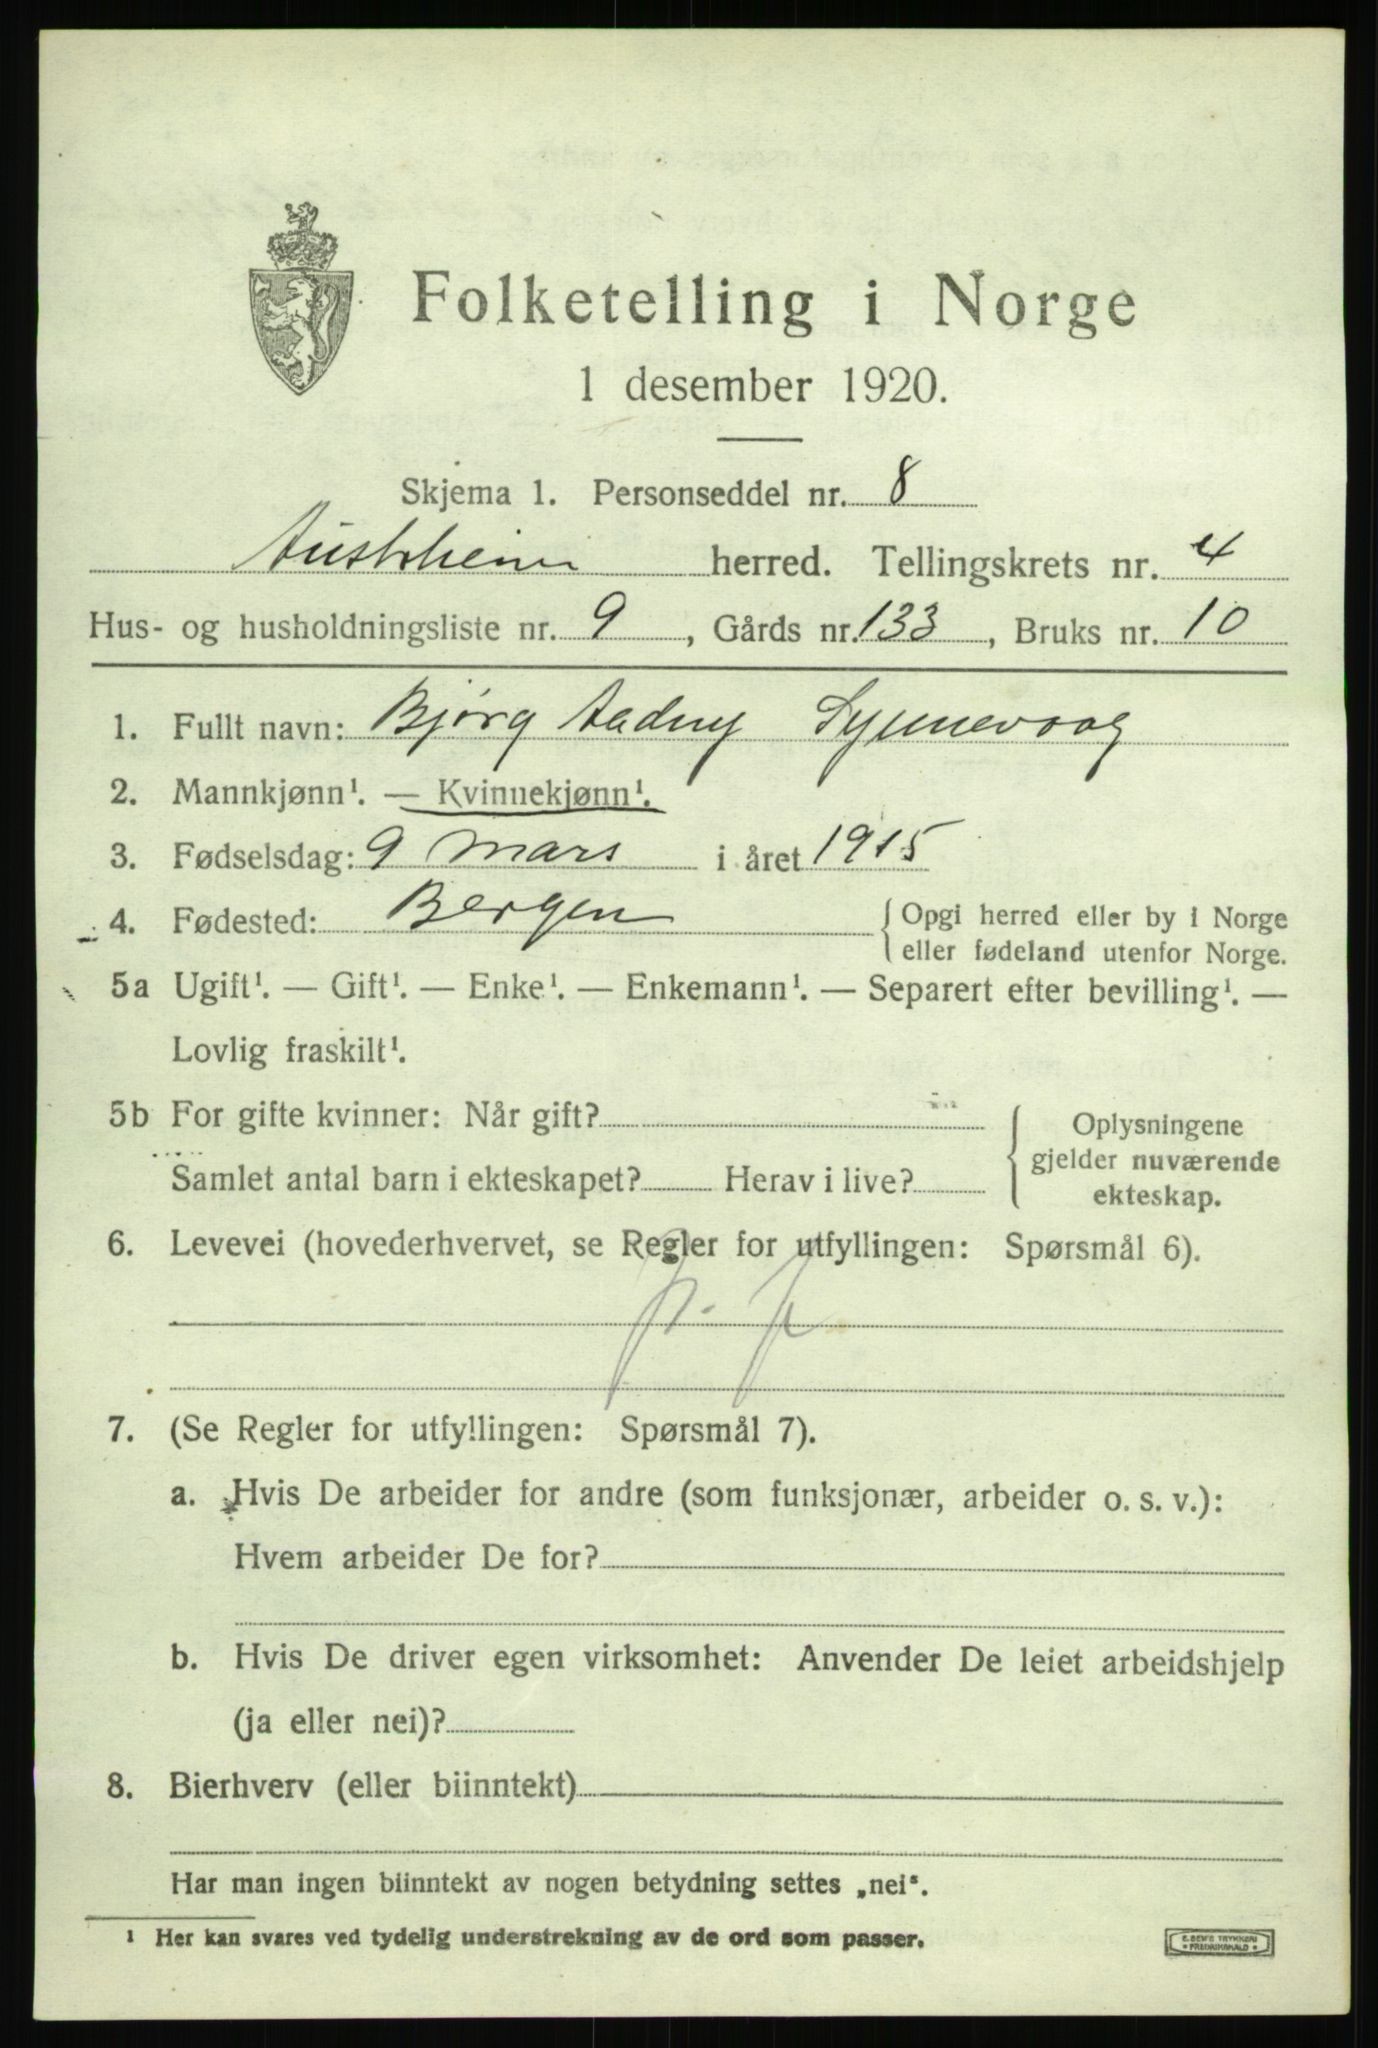 Folketelling i Norge
1 desember 1920.
Skjema 1. Personseddel nr. 8
Austrheim herred. Tellingskrets nr. 4
Hus- og husholdningsliste nr. 9, Gårds nr. 133, Bruks nr. 10
1. Fullt navn: Bjørg Aadny Synnevaag
2. Mannkjønn¹. — Kvinnekjønn¹.
3. Fødselsdag: 9 mars i året 1915
4. Fødested: Bergen { Opgi herred eller by i Norge
eller fødeland utenfor Norge.
5a Ugift¹. — Gift¹. — Enke¹. — Enkemann¹. — Separert efter bevilling¹. —
Lovlig fraskilt¹.
5b For gifte kvinner: Når gift?
Samlet antal barn i ekteskapet? Herav i live?
{ Oplysningene
gjelder nuværende
ekteskap.
6. Levevei (hovederhvervet, se Regler for utfyllingen: Spørsmål 6).
7. (Se Regler for utfyllingen: Spørsmål 7).
a. Hvis De arbeider for andre (som funksjonær, arbeider o. s. v.):
Hvem arbeider De for?
b. Hvis De driver egen virksomhet: Anvender De leiet arbeidshjelp
(ja eller nei)?
8. Bierhverv (eller biinntekt)
Har man ingen biinntekt av nogen betydning settes „nei".
¹ Her kan svares ved tydelig understrekning av de ord som passer.